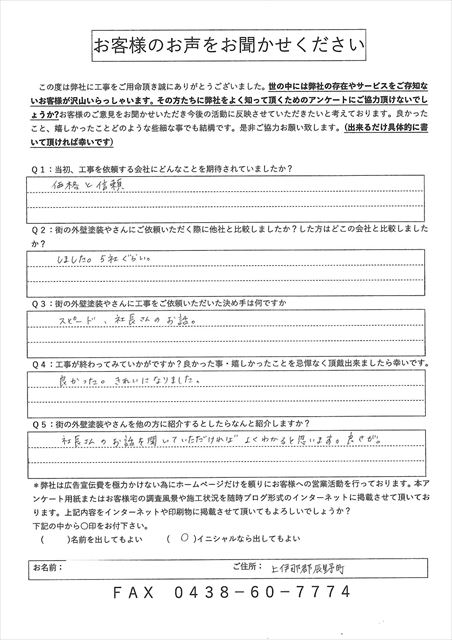 お客様のお声をお聞かせください
この度は弊社に工事をご用命頂き誠にありがとうございました。世の中には弊社の存在やサービスをご存知な
いお客様が沢山いらっしゃいます。その方たちに弊社をよく知って頂くためのアンケートにご協力頂けないでし
ょうか?お客様のご意見をお聞かせいただき今後の活動に反映させていただきたいと考えております。良かった
こと、嬉しかったことどのような些細な事でも結構です。是非ご協力お願い致します。(出来るだけ具体的に書
いて頂ければ幸いです)
Q1:当初、工事を依頼する会社にどんなことを期待されていましたか?
価格と信頼
Q2:街の外壁塗装やさんにご依頼いただく際に他社と比較しましたか?した方はどこの会社と比較しました
か?
しました。5社ぐらい。
Q3:街の外壁塗装やさんに工事をご依頼いただいた決め手は何ですか
スピード、社長さんのお話。
Q4:工事が終わってみていかがですか?良かった事・嬉しかったことを忌憚なく頂戴出来ましたら幸いです。
良かった。きれいになりました。
Q5:街の外壁塗装やさんを他の方に紹介するとしたらなんと紹介しますか?
社長さんのお話を聞いていただければよくわかると思います。良さが。
*弊社は広告宣伝費を極力かけない為にホームページだけを頼りにお客様への営業活動を行っております。本ア
ンケート用紙またはお客様宅の調査風景や施工状況を随時ブログ形式のインターネットに掲載させて頂いてお
ります。上記内容をインターネットや印刷物に掲載させて頂いてもよろしいでしょうか?
下記の中から〇印をお付下さい。
( )名前を出してもよい ( ○ )イニシャルなら出してもよい
お名前: ご住所: 上伊那郡辰野町
FAX 0438-60-7774